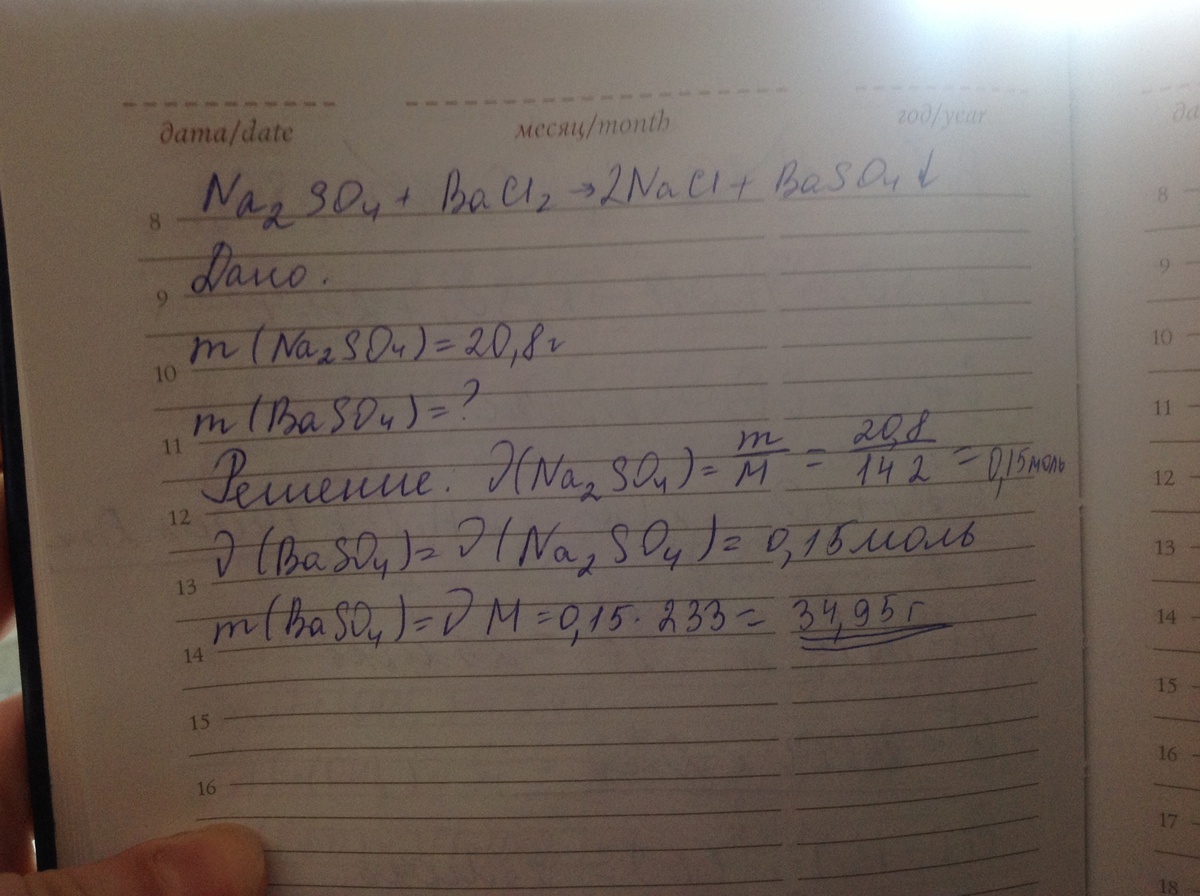 дата/date месяц/month год/year
Na2SO4 + BaCl2 → 2NaCl + BaSO4↓
8 8
Дано.
9 9
m(Na2SO4) = 20,8г
10 10
m(BaSO4) = ?
11 11
Решение: ν(Na2SO4) = m/M = 20,8/142 = 0,15моль
12 12
ν(BaSO4) = ν(Na2SO4) = 0,15моль
13 13
m(BaSO4) = ν M = 0,15 · 233 = 34,95г
14 14
15 15
16 16
17
18